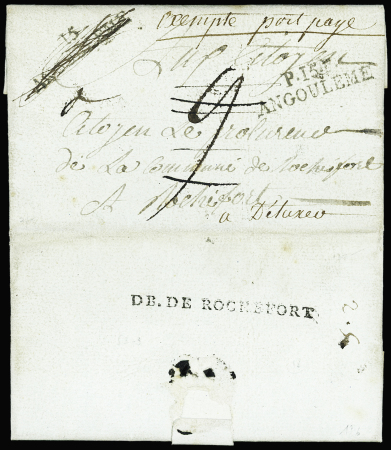 exempte port payé
15
Au Citoyen
P.15.P.
ANGOULEME
9
Citoyen Le Procureur
de La Commune de Rochefort
A Rochefort
a Détaxer
DB. DE ROCHEFORT